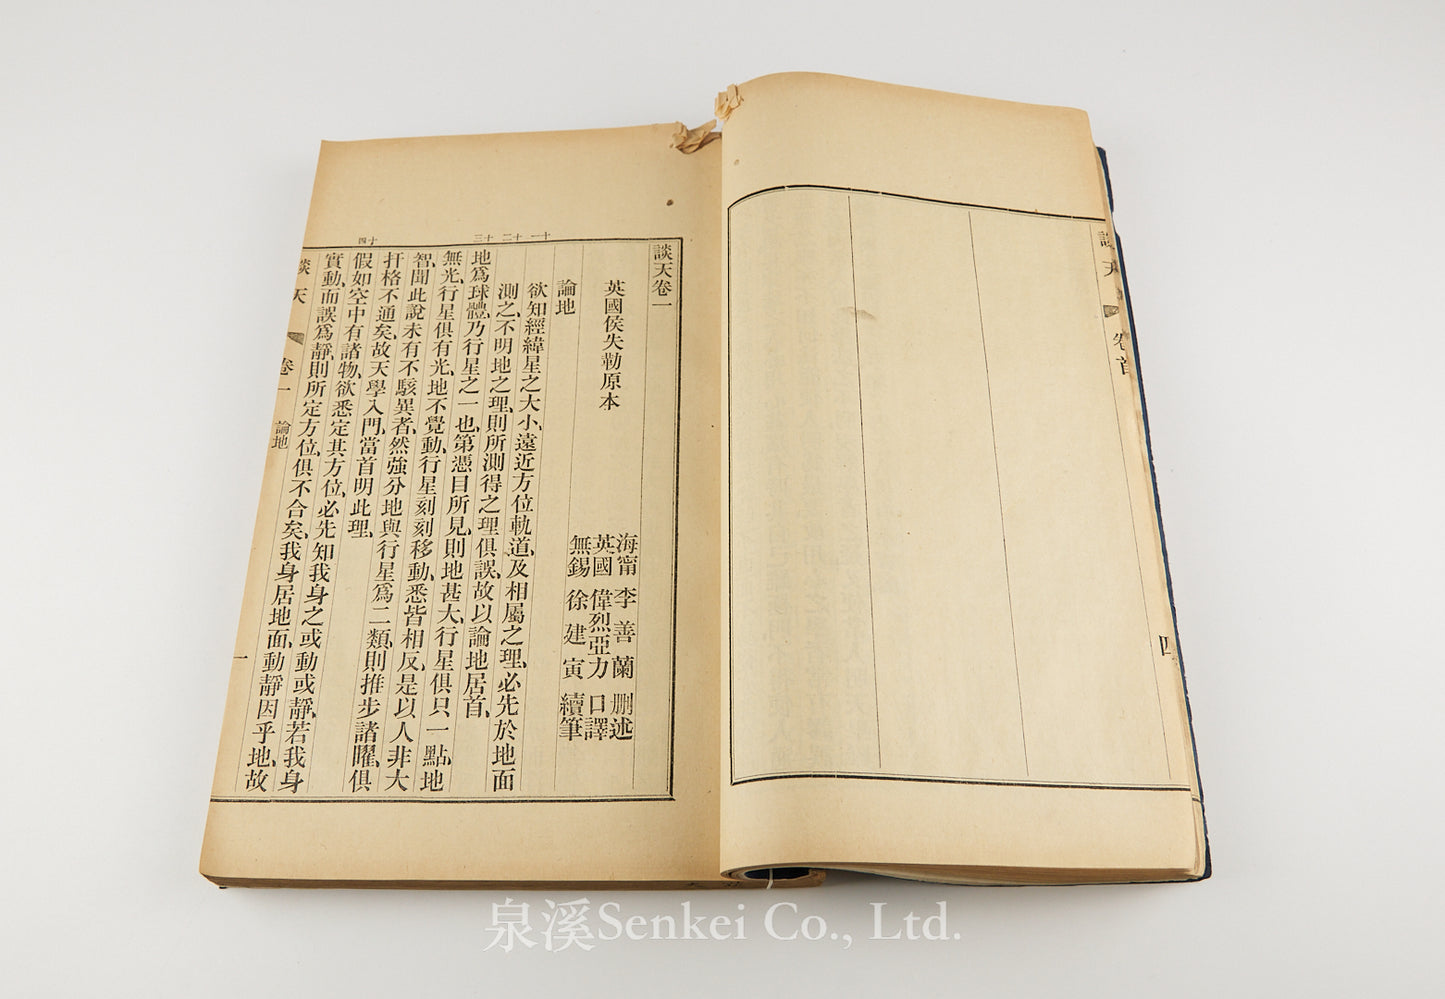 談天 卷首
四
十一 十二 十三
十四
談天卷一
英國侯失勒原本
海甯 李善蘭 刪述
英國 偉烈亞力 口譯
無錫 徐建寅 續筆
論地
欲知經緯星之大小、遠近方位軌道、及相屬之理、必先於地面
測之、不明地之理、則所測得之理俱誤、故以論地居首、
地爲球體、乃行星之一也、第憑目所見、則地甚大、行星俱只一點、地
無光、行星俱有光、地不覺動、行星刻刻移動、悉皆相反、是以人非大
智、聞此說未有不駭異者、然強分地與行星爲二類、則推步諸曜、俱
扞格不通矣、故天學入門、當首明此理、
假如空中有諸物、欲悉定其方位、必先知我身之或動或靜、若我身
實動、而誤爲靜、則所定方位、俱不合矣、我身居地面、動靜因乎地、故
談天 卷一 論地
一
泉溪Senkei Co., Ltd.